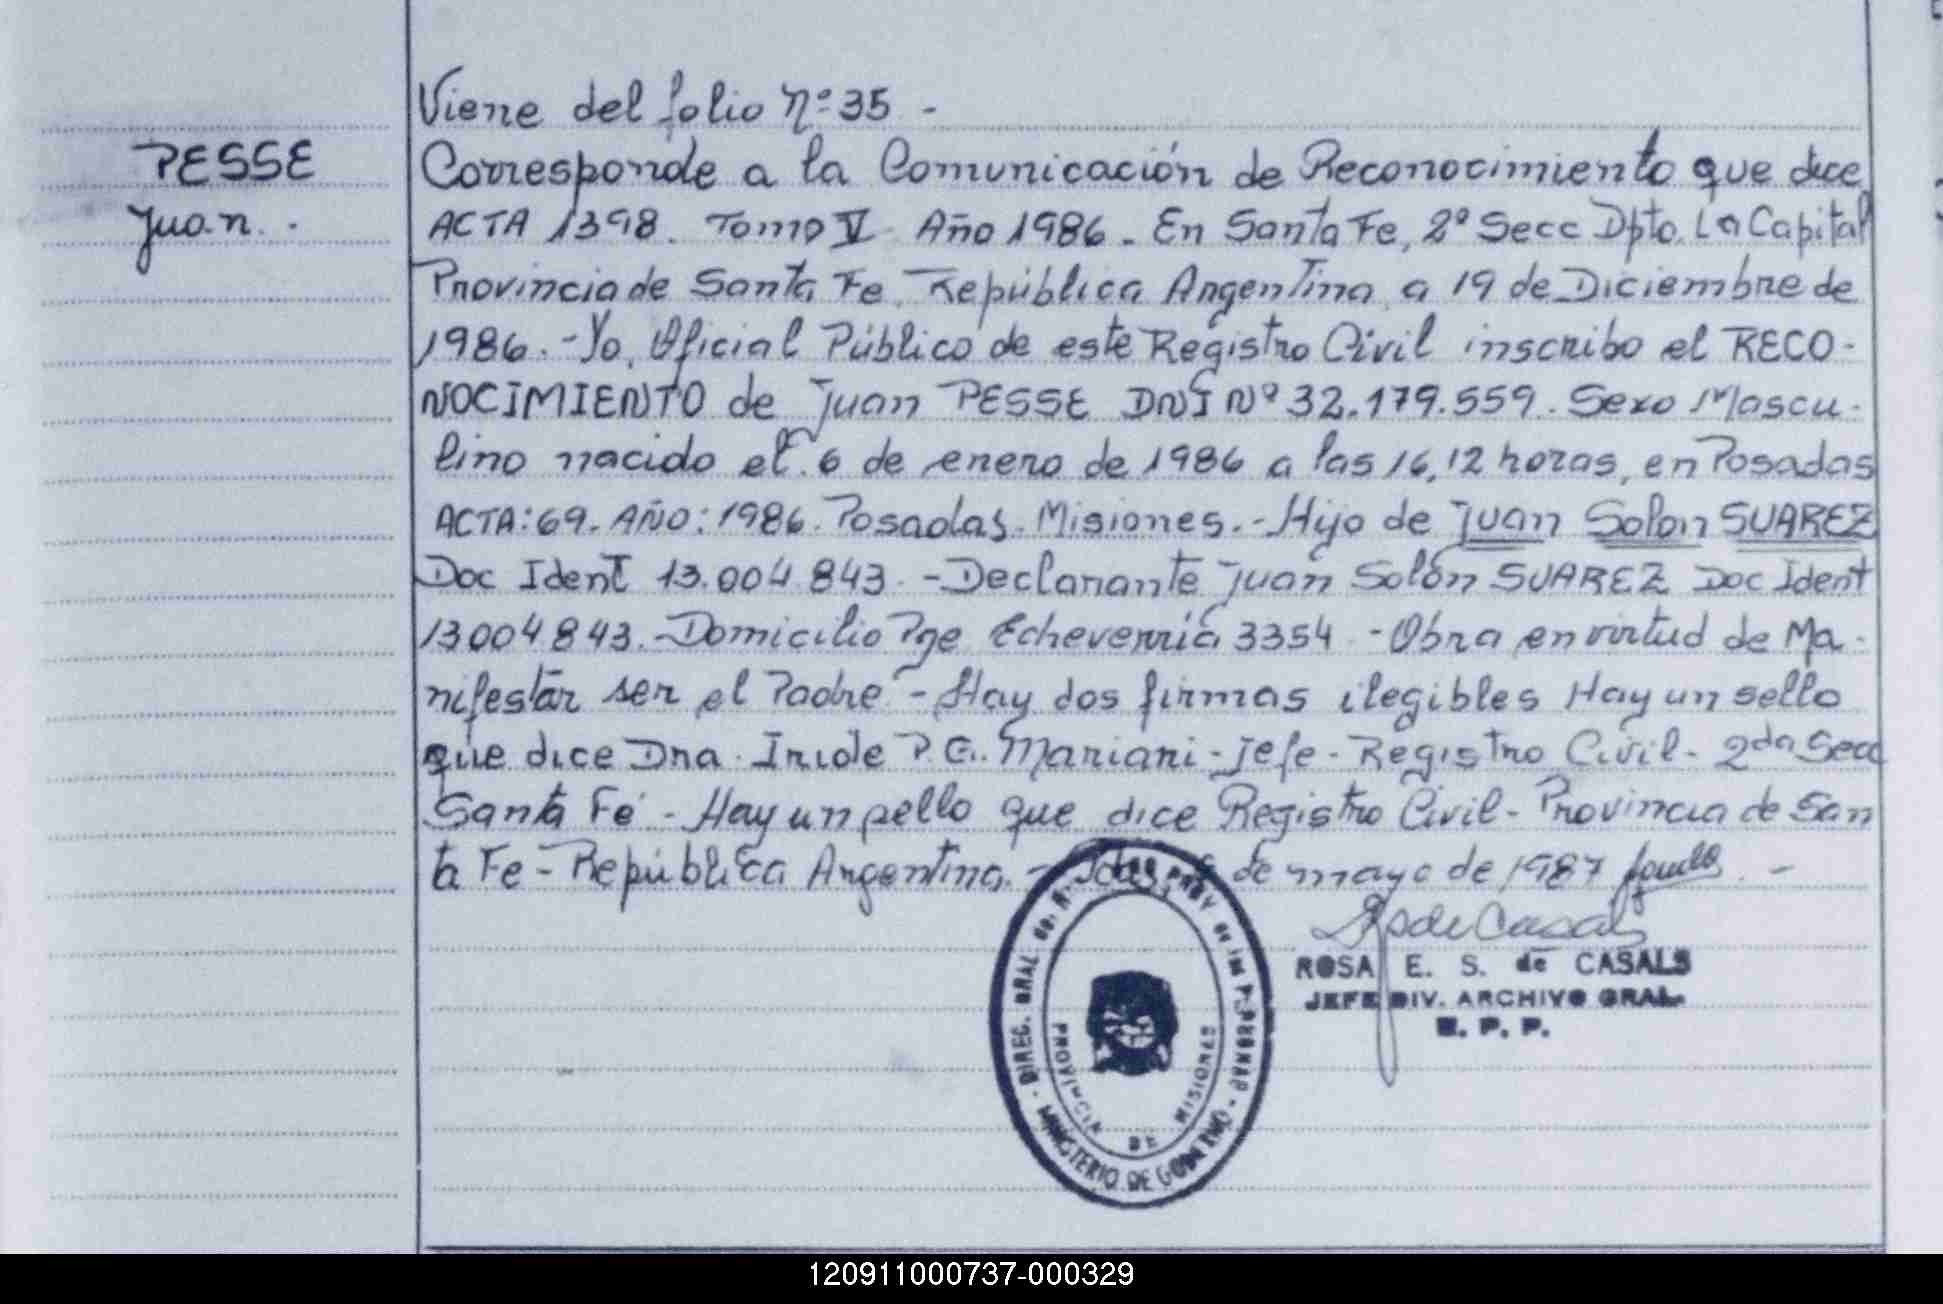 Viene del folio Nº 35 -
PESSE
Juan.
Corresponde a la Comunicación de Reconocimiento que dice
ACTA 1398. Tomo V Año 1986. En Santa Fe, 2º Secc Dpto. La Capital
Provincia de Santa Fe, República Argentina, a 19 de Diciembre de
1986.- Yo, Oficial Público de este Registro Civil inscribo el RECO-
NOCIMIENTO de Juan PESSE DNI Nº 32.179.559. Sexo Mascu-
lino nacido el 6 de enero de 1986 a las 16,12 horas, en Posadas
ACTA: 69. AÑO: 1986. Posadas. Misiones.- Hijo de Juan Solon SUAREZ
Doc Ident 13.004.843. - Declarante Juan Solón SUAREZ Doc Ident
13004843.- Domicilio Pje Echeverría 3354 - Obra en virtud de Ma-
nifestar ser el Padre - Hay dos firmas ilegibles Hay un sello
que dice Dra. Iride P. G. Mariani - Jefe - Registro Civil - 2da Secc
Santa Fé - Hay un sello que dice Registro Civil - Provincia de San
ta Fe - República Argentina. - de mayo de 1987 -
ROSA E. S. de CASALS
JEFE DIV. ARCHIVO GRAL.
R. P. P.
DIREC. GRAL. de
MINISTERIO DE GOBIERNO
PROVINCIA DE MISIONES
120911000737-000329